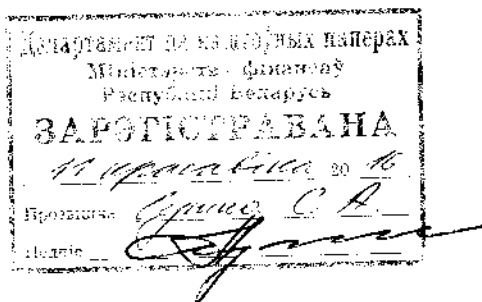 Дэпартамент па каштоўных паперах
Міністэрства фінансаў
Рэспублікі Беларусь
ЗАРЭГІСТРАВАНА
11 красавіка 20 16
Прозвішча С. А.
Подпіс